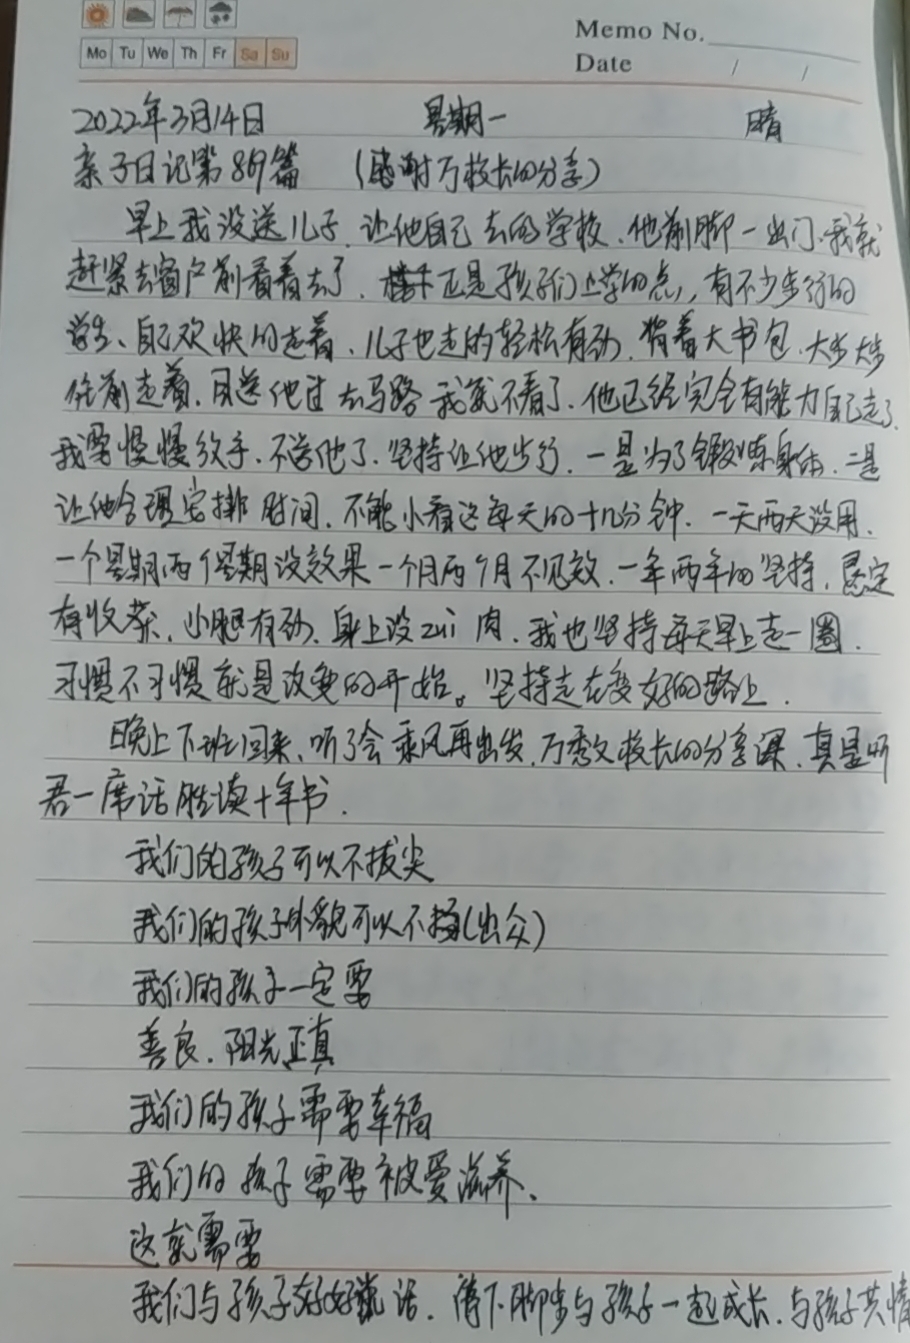 Memo No.
Mo Tu We Th Fr Sa Su
Date / /
2022年3月14日 星期一 晴
亲子日记第869篇 (感谢万校长的分享)
早上我没送儿子、让他自己去的学校、他前脚一出门、我就
赶紧去窗户前看着去了、正是孩子们上学的点,有不少步行的
学生、自己欢快的走着、儿子也走的轻松有劲、背着大书包、大步大步
往前走着、目送他过去马路我就不看了、他已经完全有能力自己走了、
我要慢慢放手、不送他了、坚持让他步行、一是为了锻炼身体、二是
让他合理安排时间、不能小看这每天的十几分钟、一天两天没用、
一个星期两个星期没效果一个月两个月不见效、一年两年的坚持,肯定
有收获、小腿有劲、身上没zui肉、我也坚持每天早上走一圈、
习惯不习惯就是改变的开始。坚持走在变好的路上、
晚上下班回来、听了会乘风再出发、万秀文校长的分享课、真是听
君一席话胜读十年书、
我们的孩子可以不拔尖
我们的孩子外貌可以不(出众)
我们的孩子一定要
善良、阳光正真
我们的孩子需要幸福
我们的孩子需要被爱滋养、
这就需要
我们与孩子好好说话、停下脚步与孩子一起成长、与孩子共情